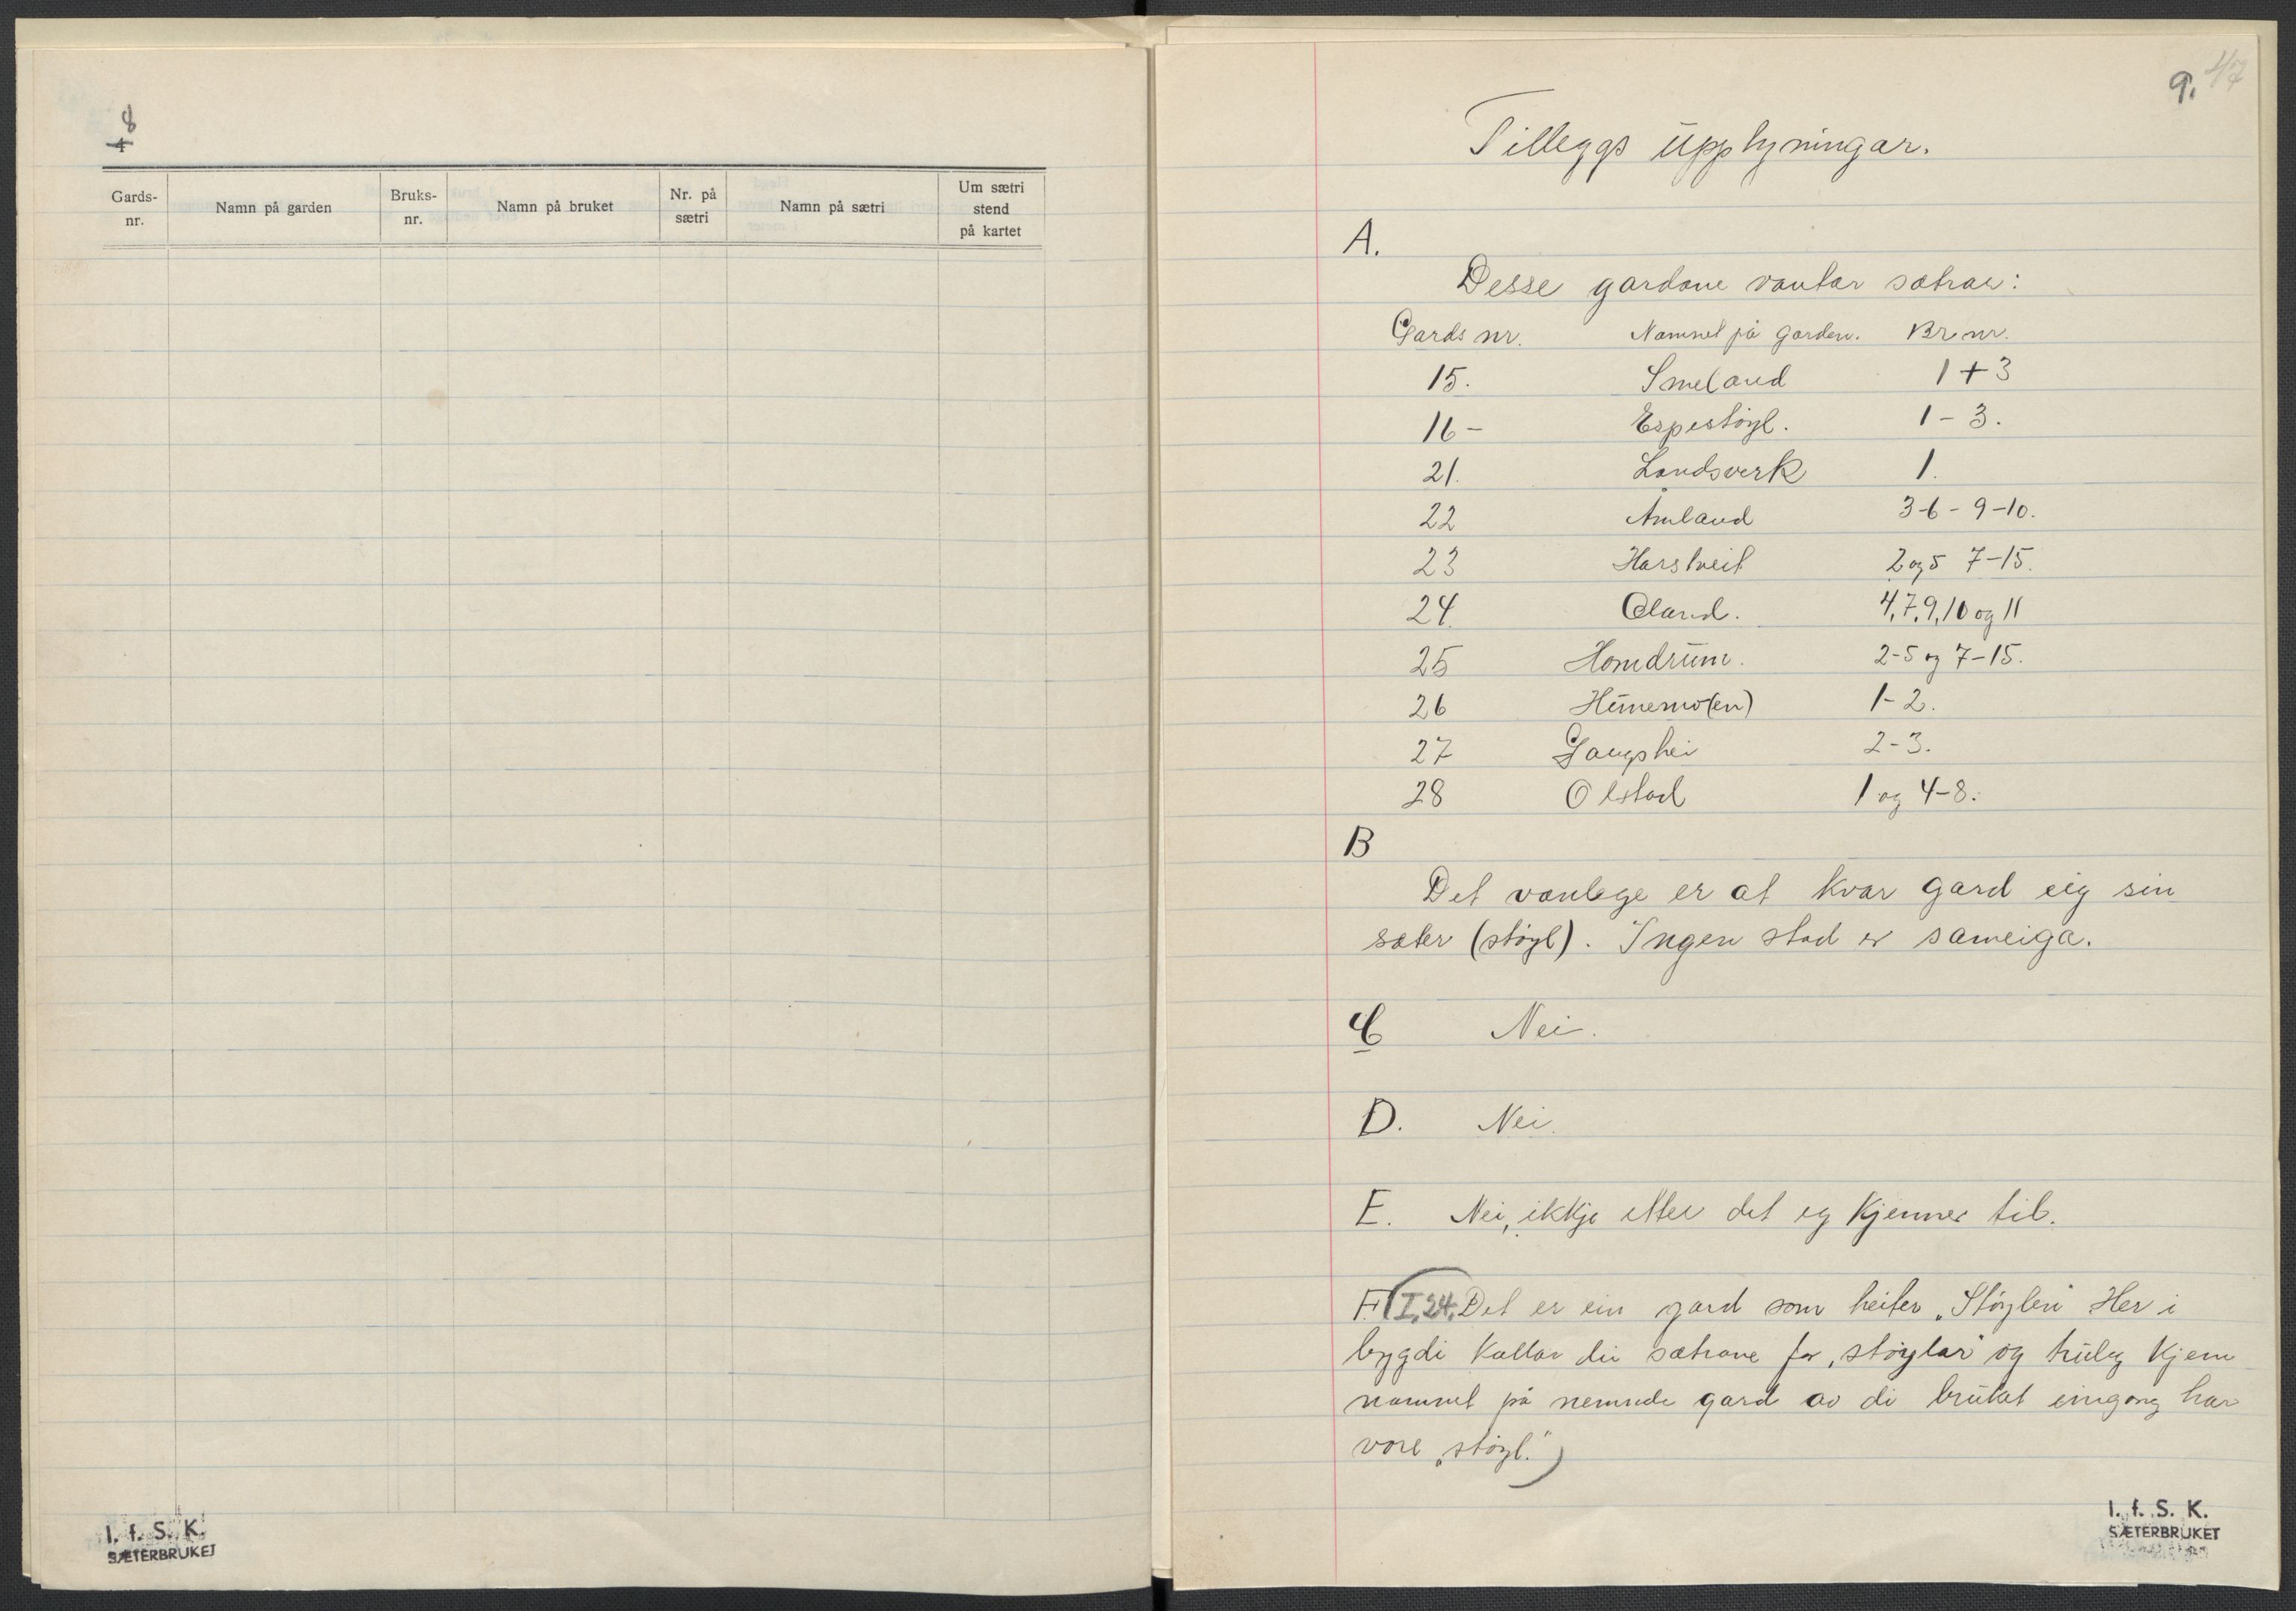 8
4
Gards-nr. Namn på garden Bruks-nr. Namn på bruket Nr. på sætri Namn på sætri Um sætri stend på kartet
I. f. S. K.
SÆTERBRUKET
9. 47
Tilleggs upplyningar.
A.
Desse gardane vantar sætrar:
Gards nr. Namnet på garden. Br nr.
15. Smeland 1+3
16- Espestøyl. 1-3.
21. Landsverk 1.
22 Åmland 3-6-9-10.
23 Harstveit 2og5 7-15.
24. Øland. 4,7,9,10 og 11
25 Homdrum. 2-5 og 7-15.
26 Hunemo(en) 1-2.
27 Gaugshei 2-3.
28 Olstad 1 og 4-8.
B
Det vanlege er at kvar gard eig sin
sæter (støyl). Ingen stad er sameiga.
C Nei.
D. Nei.
E. Nei, ikkje etter det eg kjenner til.
F. (I,24. Det er ein gard som heiter „Støylen" Her i
bygdi kallar dei sætrane for „støylar" og truleg kjem
namnet på nemnde gard av di bruket eingong har
vore „støyl.")
I. f. S. K.
SÆTERBRUKET